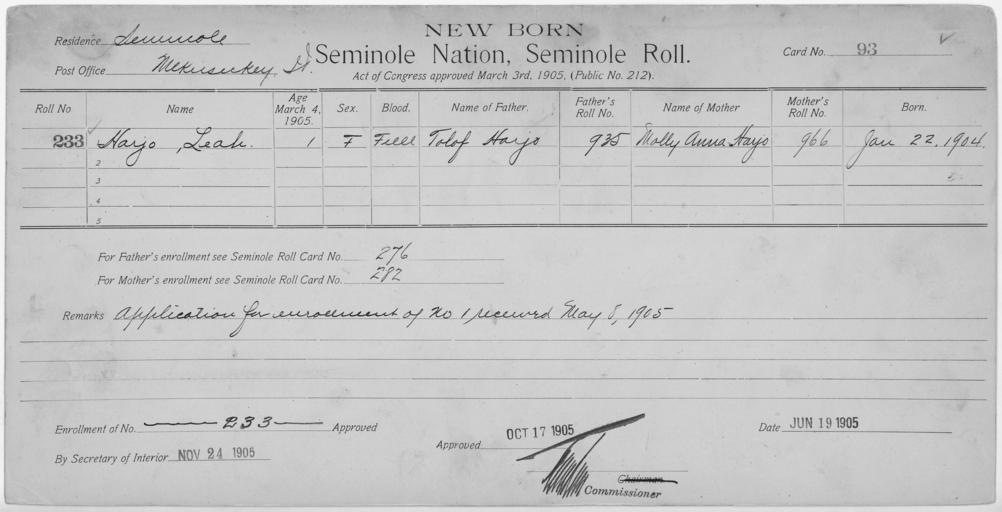 NEW BORN
Residence Seminole
Seminole Nation, Seminole Roll.
Card No. 93
Post Office Mekusukey, I.T.
Act of Congress approved March 3rd, 1905, (Public No. 212).
Roll No Name Age March 4, 1905. Sex. Blood. Name of Father. Father's Roll No. Name of Mother Mother's Roll No. Born.
233 Harjo, Leah. 1 F Full Tolof Harjo 935 Molly Anna Harjo 966 Jan 22, 1904.
2
3
4
5
For Father's enrollment see Seminole Roll Card No. 276
For Mother's enrollment see Seminole Roll Card No. 282
Remarks Application for enrollment of No 1 received May 8, 1905
Enrollment of No. 233 Approved
By Secretary of Interior NOV 24 1905
Approved OCT 17 1905
Chairman
Commissioner
Date JUN 19 1905